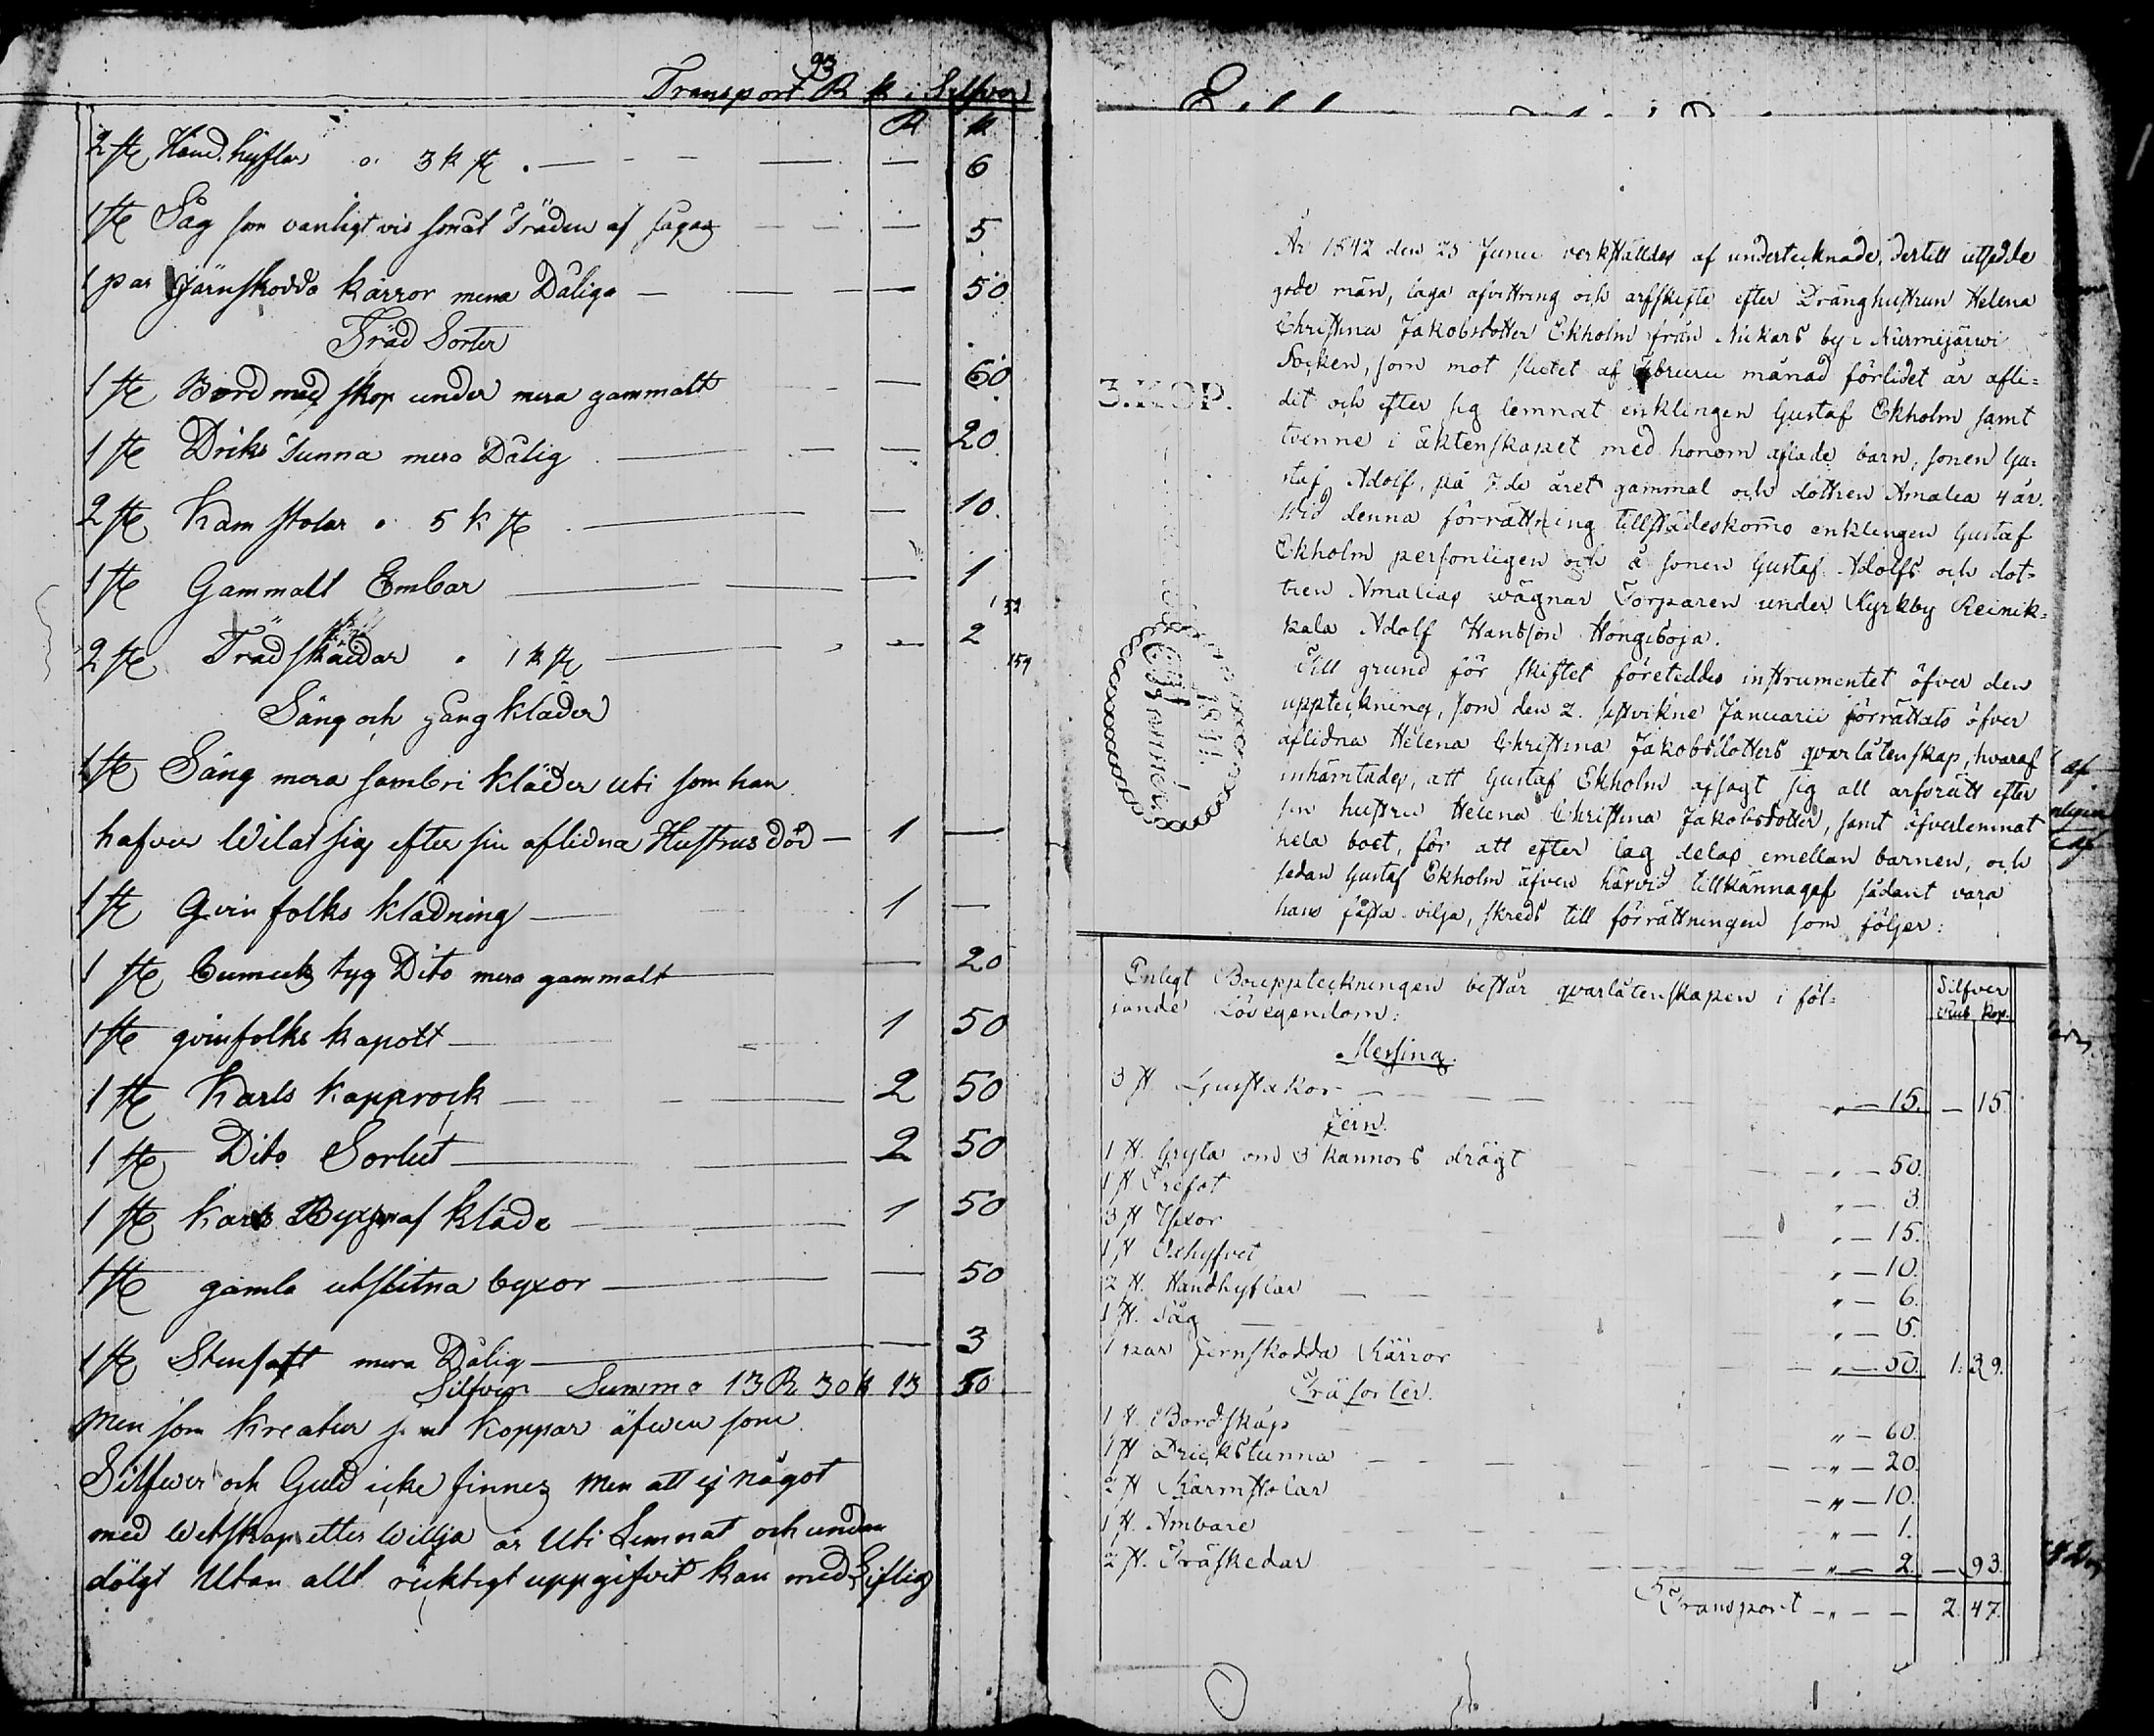 Transport 93 R k i Silfver
R k
2 st Hand hyflar a 3 k st — 6
1 st Såg som vanligt vis Träden af sagas — 5
1 par Järnskodda kärror mera Dåliga — 50
Träd Sorter
1 st Bord med skop under mera gammalt — 60
1 st Driks Tunna mera Dålig — 20
2 st Kam stolar a 5 k st — 10
1 st Gammalt Embar — 1
2 st Träd skäidar a 1 k st — 2
Säng och gång kläder
1 st Säng mera kläder uti som han
hafver wilat sig efter sin aflidna Hustrus död — 1 —
1 st Qvin folks klädning — 1 —
1 st tyg Dito mera gammalt — 20
1 st qvinfolks kapott — 1 50
1 st Karls kapprock — 2 50
1 st Dito Sortut — 2 50
1 st Karls Byxor af kläde — 1 50
1 st gamla utslitna byxor — 50
1 st mera Dålig — 3
Silfver Summa 13 R 30 k 13 50
Men som kreatur samt koppar äfwen som
Silfwer och Guld icke finnes Men att ej något
med wetskap eller willja är Uti Lemnat och undan
dölgt Utan allt ricktigt uppgifvit kan med Liflig
3. KOP.
År 1842 den 25 Junii verkställdes af undertecknade, dertill utsedde
gode män, laga afvittring och arfskifte efter Dränghustrun Helena
Christina Jakobsdotter Ekholm från Nukars by i Nurmijärwi
Socken, som mot slutet af februarii månad förlidet år afli=
dit och efter sig lemnat enklingen Gustaf Ekholm samt
tvenne i äktenskapet med honom aflade barn, sonen Gu=
staf Adolf, på 7:de året gammal och dottren Amalia 4 år.
Wid denna förrättning tillstädeskommo enklingen Gustaf
Ekholm personligen och å sonen Gustaf Adolfs och dot=
tren Amalias wägnar Torparen under Kyrkby Reinik=
kala Adolf Hansson Hongisoja.
Till grund för skiftet företeddes instrumentet öfver den
uppteckning, som den 2. sistvikne Januarii förrättats öfver
aflidna Helena Christina Jakobsdotters qvarlåtenskap, hvaraf
inhämtades, att Gustaf Ekholm afsagt sig all arfsrätt efter
sin hustru Helena Christina Jakobsdotter, samt öfverlemnat
hela boet, för att efter lag delas emellan barnen, och
sedan Gustaf Ekholm äfven härvid tillkännagaf sådant vara
hans fasta vilja, skreds till förrättningen som följer:
Enligt Bouppteckningen består qvarlåtenskapen i föl=
jande Lösegendom:
Silfver
Rub. Kop.
Messing.
3 st. Ljusstakor — " — 15. — 15.
Jern.
1 st. Gryta om 3 kannors drägt — " — 50.
1 st Trefot — " — 3.
3 st Yxor — " — 15.
1 st — " — 10.
2 st. Handhyflar — " — 6.
1 st. Såg — " — 5.
1 par Jernskodda Kärror — " — 50. 1. 39.
Träsorter.
1 st. Bordskåp — " — 60.
1 st Drickstunna — " — 20.
2 st Karmstolar — " — 10.
1 st. Ämbare — " — 1.
2 st. Träskedar — " — 2. — 93.
Transport — " — — 2. 47.